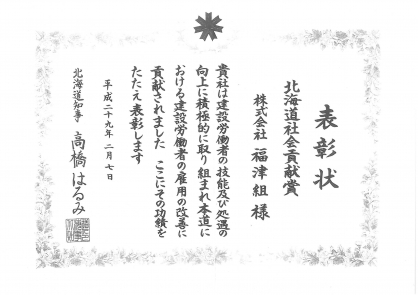 表彰状
北海道社会貢献賞
株式会社 福津組 様
貴社は建設労働者の技能及び処遇の
向上に積極的に取り組まれ本道に
おける建設労働者の雇用の改善に
貢献されました ここにその功績を
たたえ表彰します
平成二十九年二月七日
北海道知事 高橋はるみ